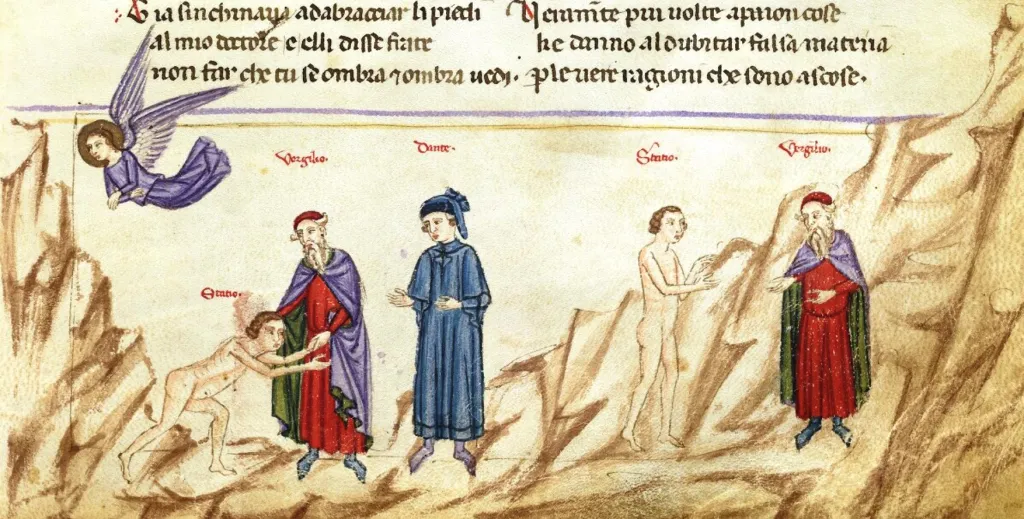 Gia sinchinaua adabracciar li piedi
al mio dottore e elli disse frate
non far che tu se ombra ⁊ ombra uedi.
Veramẽte piu uolte apaion cose
ke danno al dubitar falsa materia
ꝑ le uere ragioni che sono ascose.
Vergilio.
Dante.
Statio.
Vergilio.
Statio.